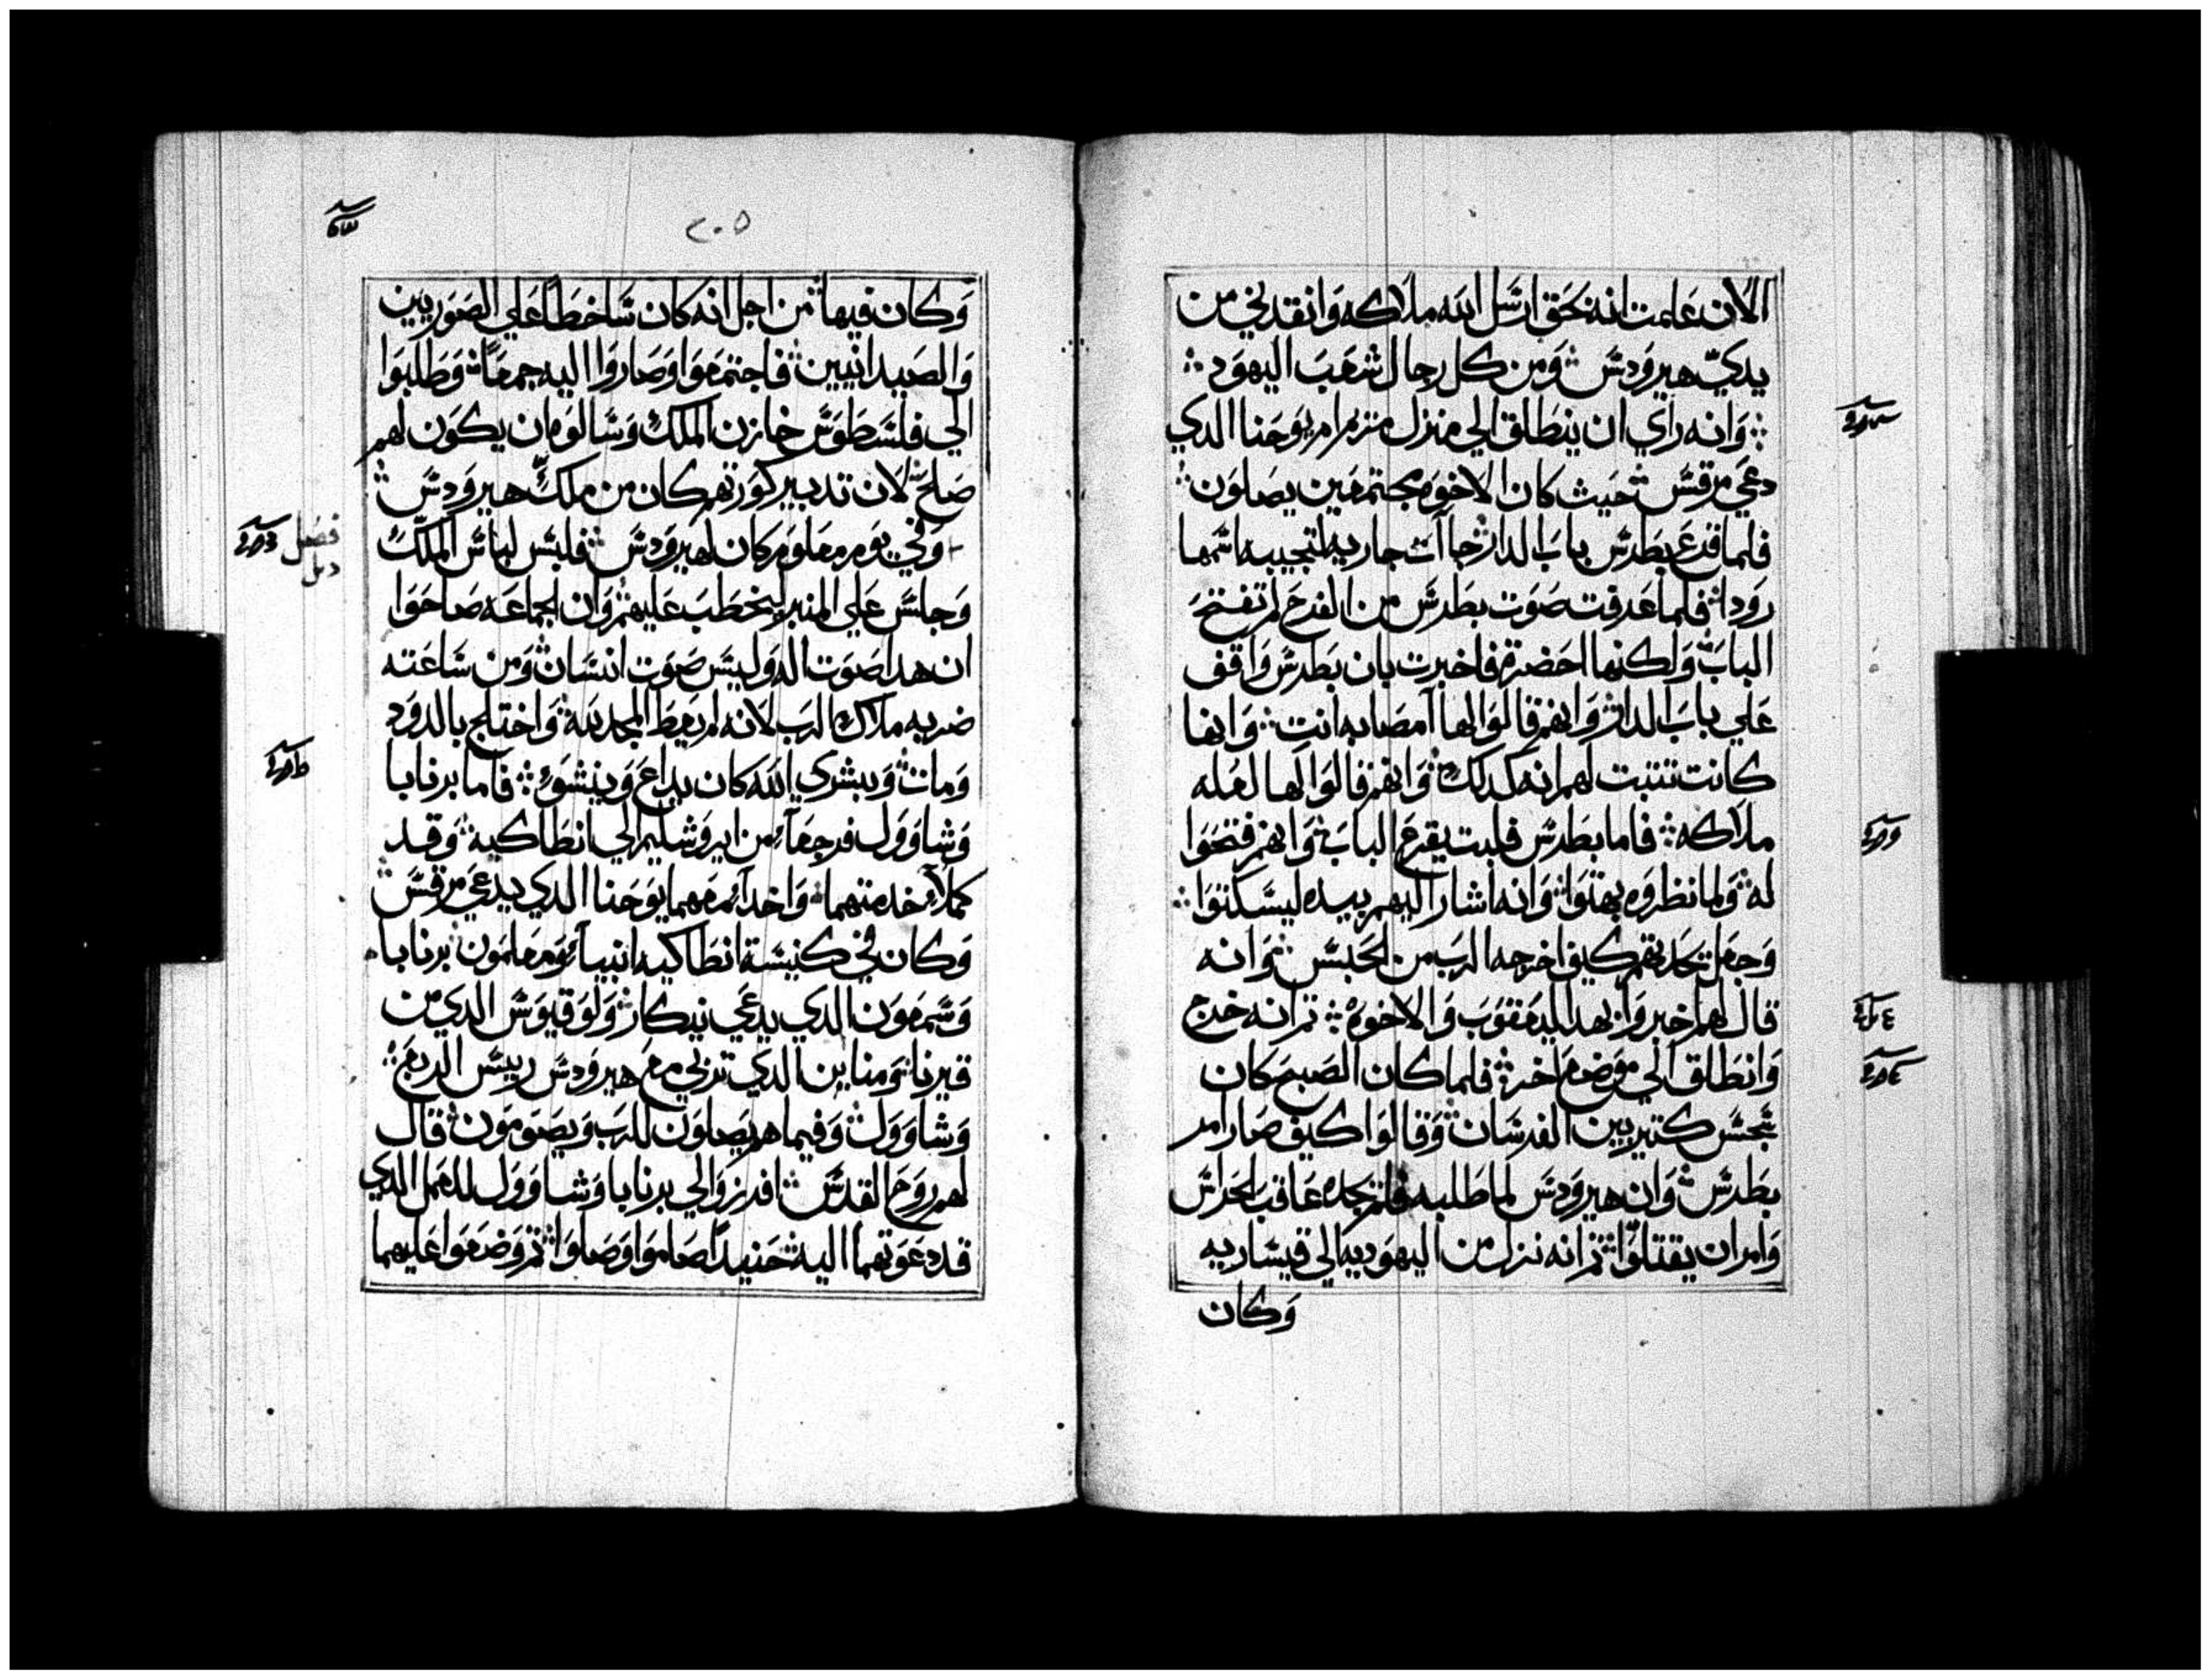 الان علمت انه بحق ارسل الله ملاكه وانقدني من
يدي هيرودس ومن كل رجال شعب اليهود
وانه راي ان ينطلق الي منزل مريم ام يوحنا الدي
دعي مرقس حيث كان الاخوه مجتمعين يصلون
فلما قرع بطرس باب الدار جاات جاريه لتجيبه اسمها
رودا فلما عرفت صوت بطرس من الفرح لم تفتح
الباب ولكنها احضرة فاخبرت بان بطرس واقف
علي باب الدار وانهم قالوا لها امصابه انت وانها
كانت تتبت لهم انه كدلك وانهم قالوا لها لعله
ملاكه فاما بطرس فلبت يقرع الباب وانهم فتحوا
له ولما نظروه بهتوا وانه اشار اليهم بيده ليسكتوا
وجعل يحدتهم كيف اخرجه الرب من الحبس وانه
قال لهم اخبروا بهدا ليعقوب والاخوه تم انه خرج
وانطلق الي موضع اخر فلما كان الصبح كان
سجس كتير بين الفرسان وقالوا كيف صار امر
بطرس وان هيرودس لما طلبه فلم يجده عاقب الحراس
وامر ان يقتلوا تم انه نزل من اليهوديه الي قيساريه
وكان
٢٠٥
وكان فيها من اجل انه كان ساخطا علي الصوريين
والصيدانيين فاجتمعوا وصاروا اليه جمعا وطلبوا
الي فلسطوس خازن الملك وسالوه ان يكون لهم
صلح لان تدبير كورتهم كان من ملك هيرودس
وفي يوم معلوم كان لهيرودس فلبس لباس الملك
وجلس علي المنبر ليخطب عليهم وان الجماعه صاحوا
ان هدا صوت اله وليس صوت انسان ومن ساعته
ضربه ملاك الرب لانه لم يعط المجد لله واختلج بالدود
ومات وبشري الله كان يداع وينشوء فاما برنابا
وشاوول فرجعا من ايروشليم الي انطاكيه وقد
كملا خدمتهما واخدا معهما يوحنا الدي يدعي مرقس
وكان في كنيسة انطاكيه انبيا ومعلمون برنابا
وسمعون الدي يدعي نيكار ولوقيوس الدي من
قيرنا ومناين الدي تربي مع هيرودس رييس الربع
وشاوول وفيما هم يصلون للرب ويصومون قال
لهم روح القدس افرزوا لي برنابا وشاوول للعمل الدي
قد دعوتهما اليه حنيدا صاموا وصلوا تم وضعوا عليهما
فصل